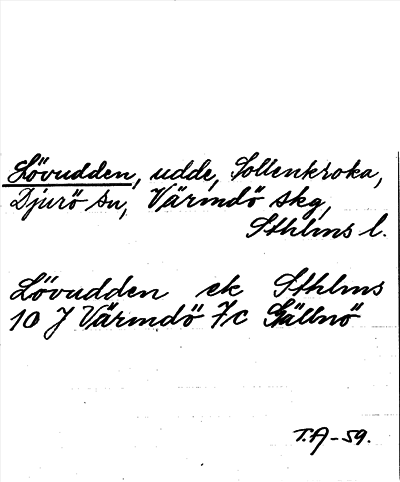 Lövudden, udde, Sollenkroka,
Djurö sn, Värmdö skg,
Sthlms l.
Lövudden ek Sthlms
10 J Värmdö 7c Gällnö
T.A-59.